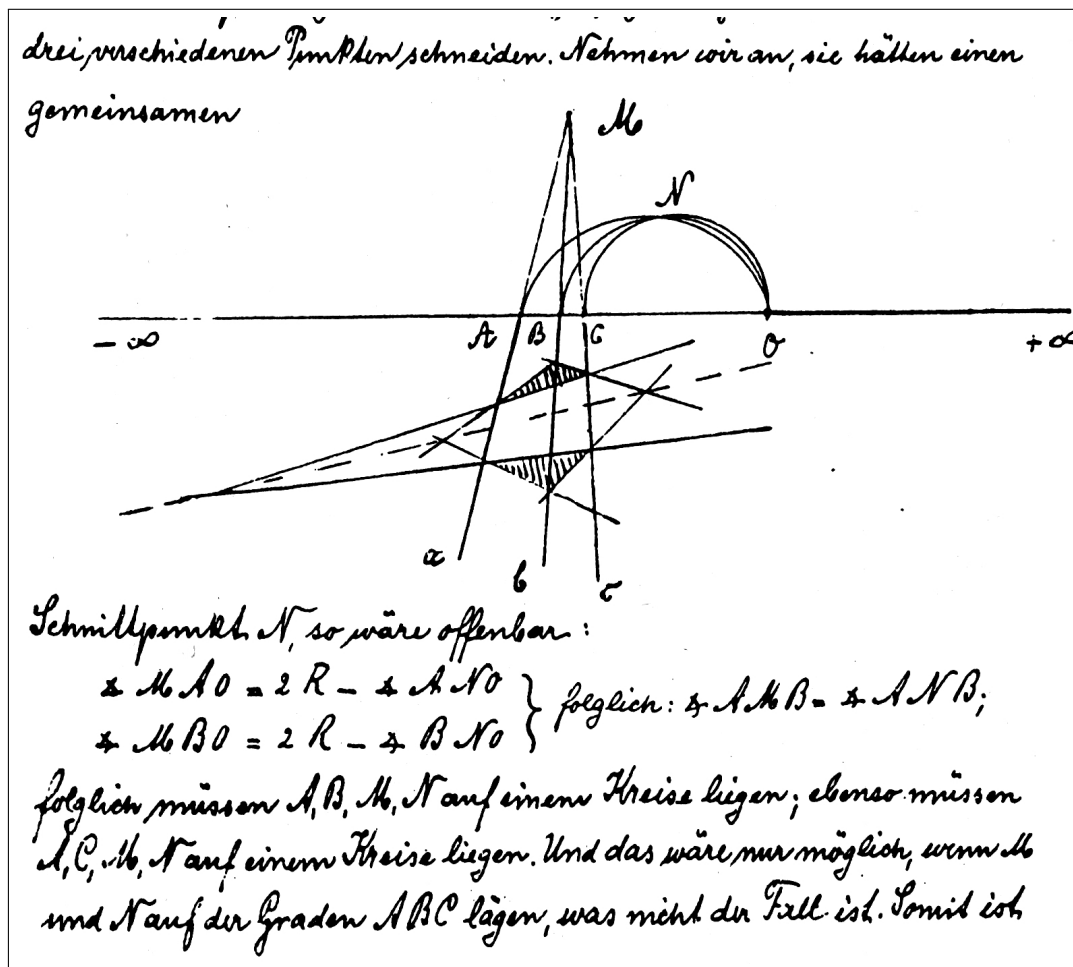 drei verschiedenen Punkten schneiden. Nehmen wir an, sie hätten einen
gemeinsamen
M
N
- ∞ A B C O + ∞
a b c
Schnittpunkt N, so wäre offenbar:
∡ MAO = 2 R - ∡ ANO
∡ MBO = 2 R - ∡ BNO } folglich: ∡ AMB = ∡ ANB;
folglich müssen A, B, M, N auf einem Kreise liegen; ebenso müssen
A, C, M, N auf einem Kreise liegen. Und das wäre nur möglich, wenn M
und N auf der Graden ABC lägen, was nicht der Fall ist. Somit ist